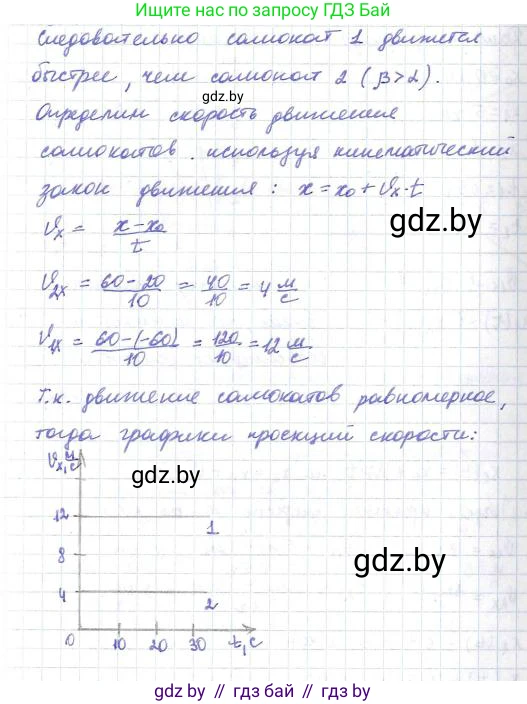 Присоединяйся на решения по запросу ГДЗ Бай
Следовательно самокат 1 движется
быстрее, чем самокат 2 (β>α).
gdz.by
Определим скорость движения
самокатов, используя кинематический
закон движения: x = x₀ + υₓ·t
gdz.by
υₓ = (x-x₀)/t
υ₂ₓ = (60-20)/10 = 40/10 = 4 м/с
υ₁ₓ = (60-(-60))/10 = 120/10 = 12 м/с
Т.к. движение самокатов равномерное,
тогда графики проекций скорости:
υₓ, м/с
gdz.by
12
1
8
gdz.by
4
2
0 10 20 30 t, с
gdz.by // гдз бай // gdz.by